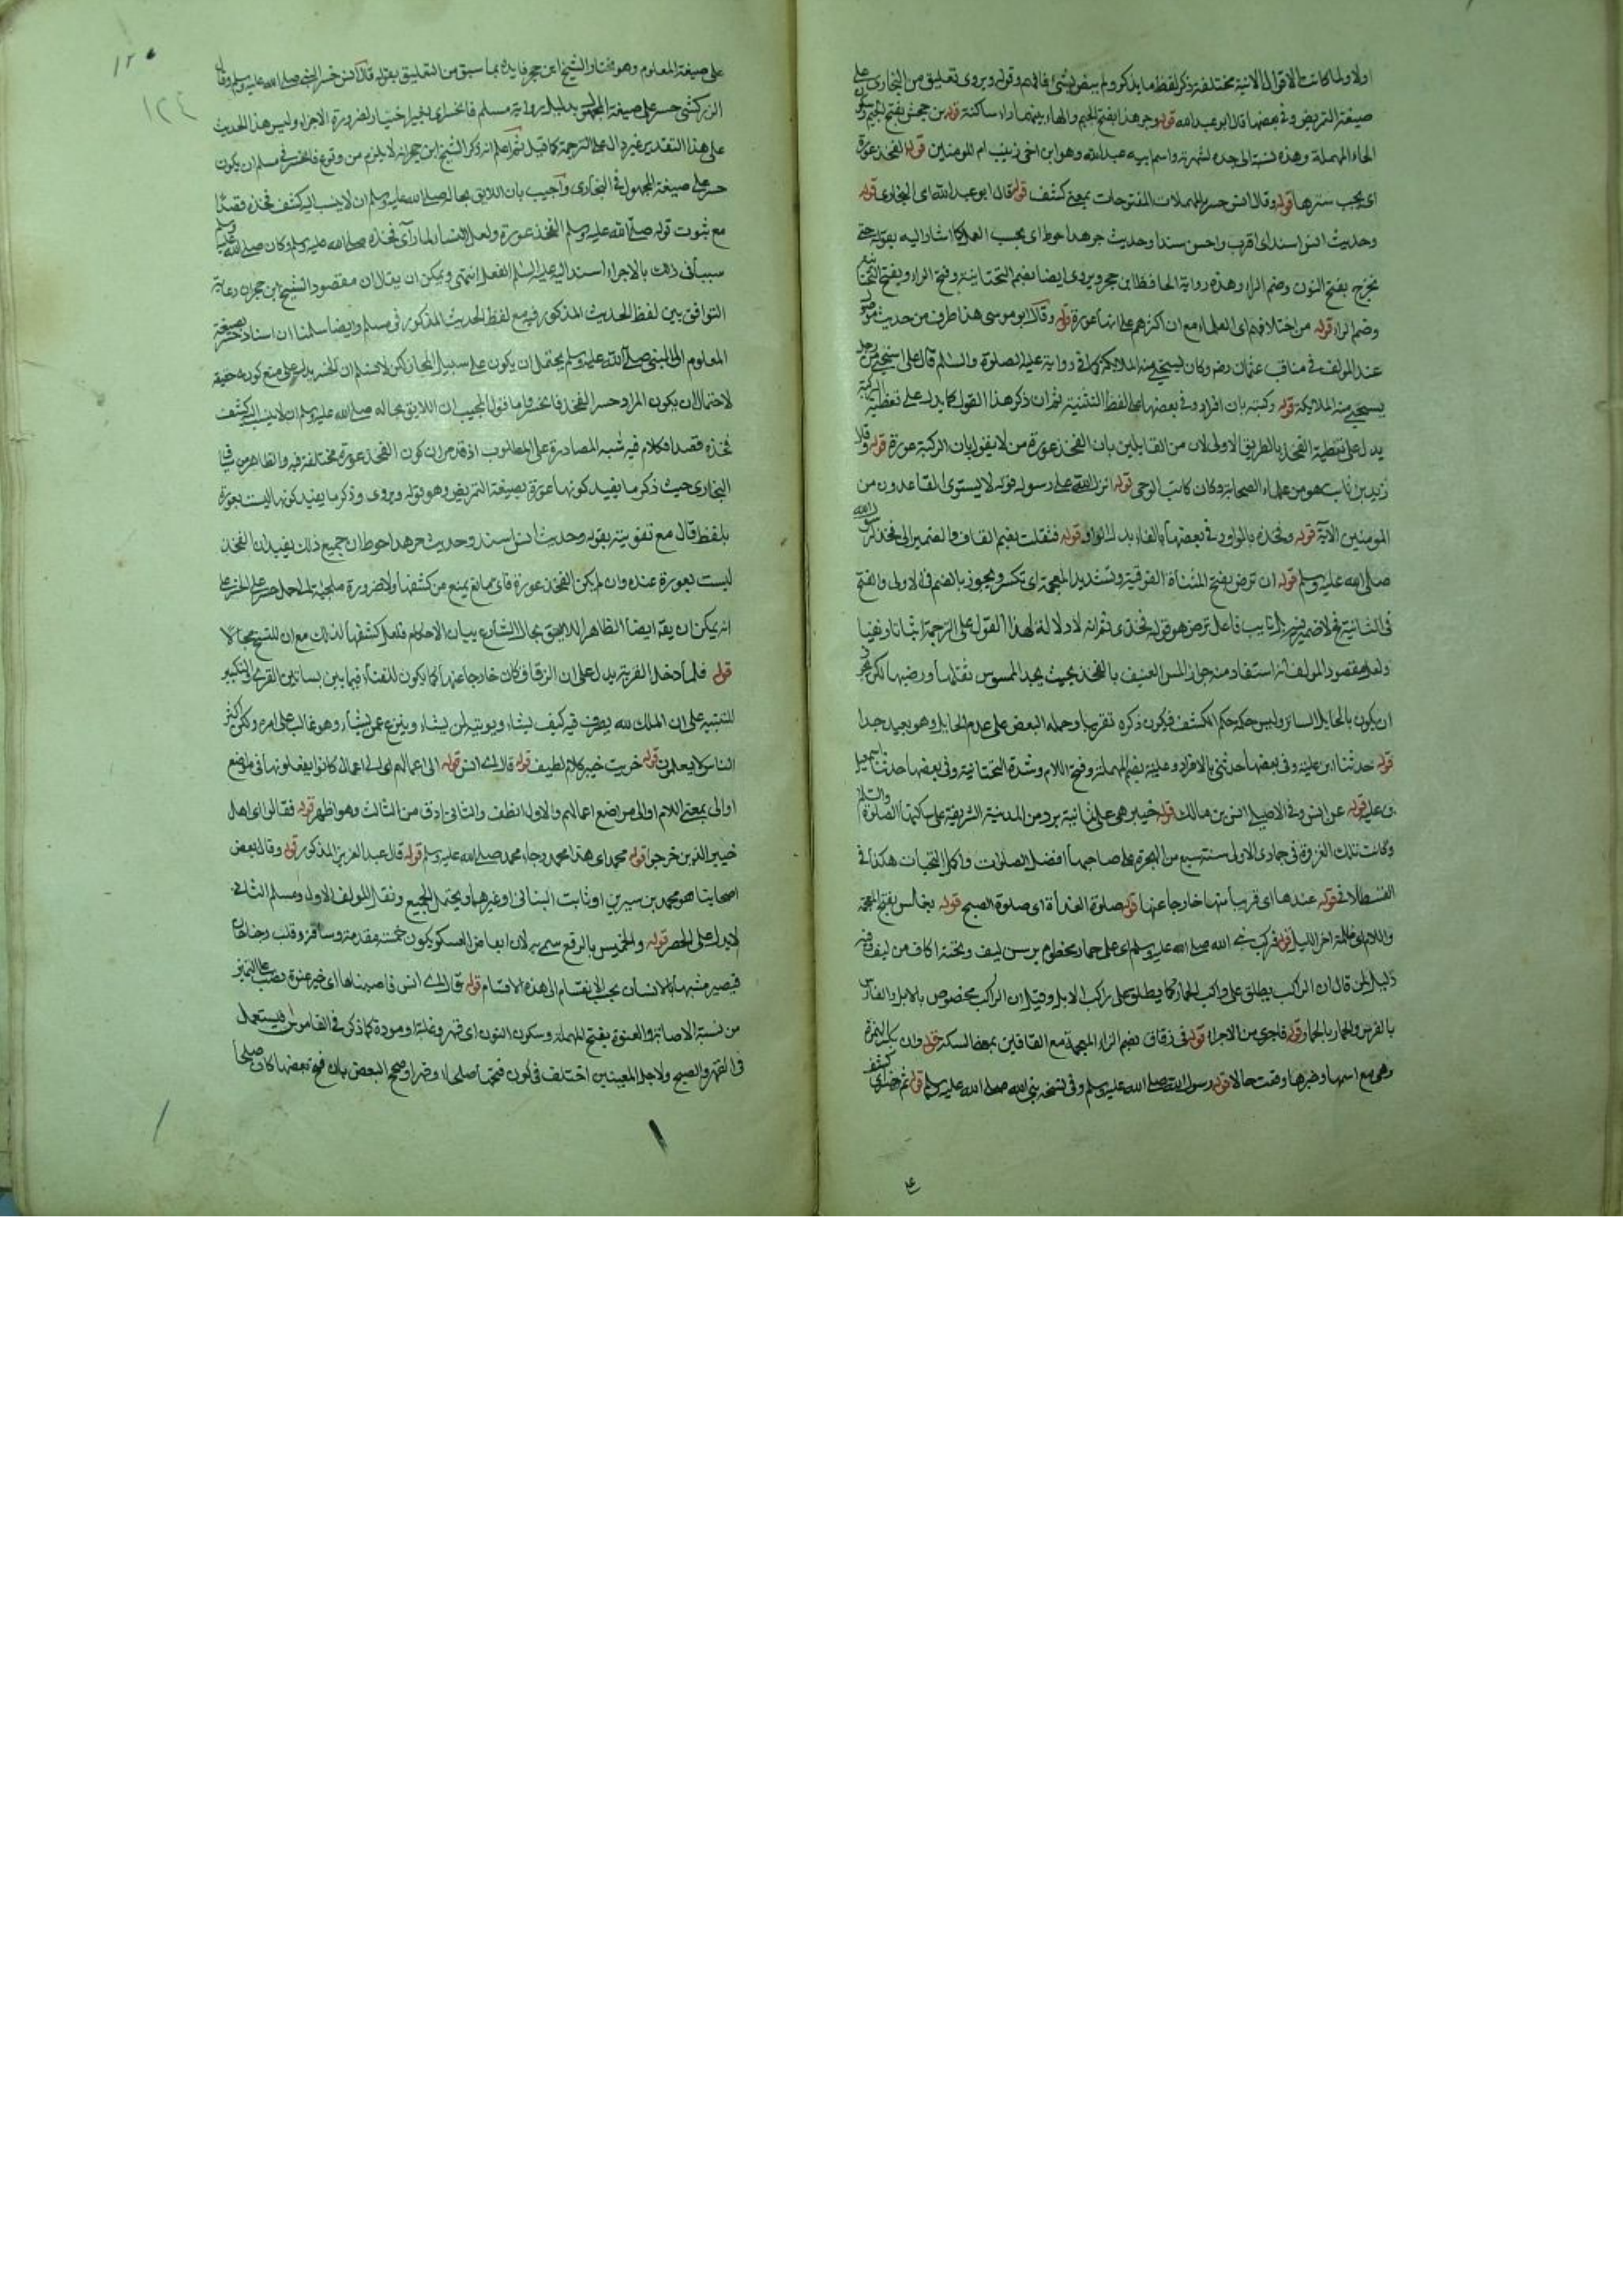 اولا ولما كانت الاقوال الاتية مختلفة ذكر لفظ ما يذكر ولم يبض بشئ فافهم وقوله ويروى تعليق من البخارى على
صيغة التريض وفى بعضها قال ابو عبد الله قوله وجرهد بفتح الجيم والهاء بينهما راء ساكنة قوله بن جحش بفتح الجيم وسكون
الحاء المهملة وهذه نسبة الى جده لشهرته واسم ابيه عبد الله وهو ابن اخى زينب ام المومنين قوله الفخذ عورة
اى يجب سترها قوله وقال انس حسر بالمهملات المفتوحات بمعنى كشف قوله قال ابو عبد الله اى البخارى قوله
وحديث انس اسند اى اقرب واحسن سندا وحديث جرهد احوط اى بحسب العمل كما اشار اليه بقوله حتى
نخرج بفتح النون وضم الراء وهذه رواية الحافظ ابن حجر ويروى ايضا بضم التحتانية وفتح الراء وبفتح التحتانية
وضم الراء قوله من اختلافهم اى العلماء مع ان اكثرهم على انها عورة قوله وقال ابو موسى هذا طرف من حديث موصول
عند المولف فى مناقب عثمان رضه وكان يستحيى منه الملايكة كما فى رواية عليه الصلوة والسلم قال على استحيى من رجل
يستحيى منه الملايكة قوله ركبته بان افراد وفى بعضها على لفظ التثنية ثم ان ذكر هذا القول كما يدل على تغطية الركبة
يدل على تغطية الفخذ بالطريق الاولى لان من القايلين بان الفخذ عورة من لا يقول بان الركبة عورة قوله وقال
زيد بن ثابت هو من علماء الصحابة وكان كاتب الوحى قوله انزل الله على رسوله قوله لا يستوى القاعدون من
المومنين الاية قوله وفخذه بالواو وفى بعضها بالفاء بدل الواو قوله فثقلت بضم القاف والضمير الى فخذ رسول الله
صلى الله عليه وسلم قوله ان ترض بفتح المثناة الفوقية وتشديد المعجمة اى تكسر ويجوز بالضم فى الاولى والفتح
فى الثانية فلا ضمير فيه بل نايب فاعل ترض هو قوله فخذى ثم انه لا دلالة لهذا القول على الترجمة اثباتا ونفيا
ولعل مقصود المولف انه استفاد منه جواز المس العنيف بالفخذ بحيث يجد الممسوس ثقلها ورضها لكن يجوز
ان يكون بالحايل الساتر وليس حكمه حكم الكشف فيكون ذكره تقريبا وحمله البعض على عدم الحايل وهو بعيد جدا
قوله حدثنا ابن علية وفى بعضها حدثنى بالافراد وعلية بضم المهملة وفتح اللام وشدة التحتانية وفى بعضها حدثنا اسمعيل
بن علية قوله عن انس وفى الاصيلى انس بن مالك قوله خيبر هى على ثمانية برد من المدينة الشريفة على ساكنها الصلوة والسلم
وكانت تلك الغزوة فى جمادى الاولى سنة سبع من الهجرة على صاحبها افضل الصلوات واكمل التحيات هكذا فى
القسطلانى قوله عندها اى قريبا منها خارجا عنها قوله صلوة الغداة اى صلوة الصبح قوله بغلس بفتح المعجمة
واللام اى ظلمة اخر الليل قوله فركب نبى الله صلى الله عليه وسلم اى على حمار مخطوم برسن ليف وتحته اكاف من ليف وفيه
دليل لمن قال ان الراكب يطلق على راكب الحمار كما يطلق على راكب الابل وقيل ان الراكب مخصوص بالابل والفارس
بالفرس والحمار بالحمار قوله فاجرى من الاجراء قوله فى زقاق بضم الزاء المعجمة مع القافين بمعنى السكة قوله وان بكسر الهمزة
وهى مع اسمها وخبرها وقعت حالا قوله رسول الله صلى الله عليه وسلم وفى نسخة نبى الله صلى الله عليه وسلم قوله ثم حسر اى كشف
على صيغة المعلوم وهو مختار الشيخ ابن حجر فايده بما سبق من التعليق بقوله قال انس حسر النبى صلى الله عليه وسلم وقال
الزركشى حسر على صيغة المجهول بدليل رواية مسلم فانحسر اى بغير اختيار لضرورة الاجراء وليس هذا الحديث
على هذا التقدير غير دال على الترجمة كما قيل ثم اعلم انه ذكر الشيخ ابن حجر انه لا يلزم من وقوع فانحسر فى مسلم ان يكون
حسر على صيغة المجهول فى البخارى واجيب بان اللايق بحاله صلى الله عليه وسلم ان لا ينسب اليه كشف فخذه قصدا
مع ثبوت قوله صلى الله عليه وسلم الفخذ عورة ولعل انسا لما راى فخذه صلى الله عليه وسلم وكان صلى الله عليه وسلم
سببا فى ذلك بالاجراء اسند اليه عليه السلم الفعل انتهى ويمكن ان يقال ان مقصود الشيخ ابن حجر ان رعاية
التوافق بين لفظ الحديث المذكور فيه مع لفظ الحديث المذكور فى مسلم وايضا سلمنا ان اسناد حسر بصيغة
المعلوم الى النبى صلى الله عليه وسلم يحتمل ان يكون على سبيل المجاز لكن لا نسلم ان انحسر يدل على منع كونه حقيقة
لاحتمال ان يكون المراد حسر الفخذ فانحسر واما قول المجيب ان اللايق بحاله صلى الله عليه وسلم ان لا ينسب اليه كشف
فخذه قصدا فكلام فيه شبه المصادرة على المطلوب اذ قد مر ان كون الفخذ عورة مختلفة فيه والظاهر من سياق
البخارى حيث ذكر ما يفيد كونها عورة بصيغة التريض وهو قوله ويروى وذكر ما يفيد كونها ليست بعورة
بلفظ قال مع تقويته بقوله وحديث انس اسند وحديث جرهد احوط ان جميع ذلك يفيد ان الفخذ
ليست بعورة عنده وان لم يكن الفخذ عورة فاى مانع يمنع من كشفها ولا ضرورة ملجئة الى حمل حسر على انحسر على
انه يمكن ان يقال ايضا الظاهر اللايق بحال الشارع بيان الاحكام فلعل كشفها لذلك مع ان للتسع مجالا
قوله فلما دخل القرية يدل على ان الزقاق كان خارجا عنها كما يكون للفناء فيما بين بساتين القرى والتكبير
للتنبيه على ان الملك لله يصرف فيه كيف يشاء ويوتيه لمن يشاء وينزع عمن يشاء وهو غالب على امره ولكن اكثر
الناس لا يعلمون قوله خربت خيبر كلام لطيف قوله قال اى انس قوله الى اعمالهم اى الى اعمال كانوا يفعلونها فى مواضع
او الى بمعنى اللام او الى مواضع اعمالهم والاول الطف والثانى ادق من الثالث وهو اظهر قوله فقالوا اى اهل
خيبر الذين خرجوا قوله محمد اى هذا محمد وجاء محمد صلى الله عليه وسلم قوله قال عبد العزيز المذكور قوله وقال بعض
اصحابنا هو محمد بن سيرين او ثابت البنانى او غيرهما ويحتمل الجميع ونقل المولف الاول ومسلم الثانى
لا يدل على الحصر قوله والخميس بالرفع سمى به لان ابعاض العسكر يكون خمسة مقدمة وساقة وقلب وجناحان
فيصير مشبها بالانسان بحسب الانقسام الى هذه الاقسام قوله قال اى انس فاصبناها اى خيبر عنوة نصب على التميز
من نسبة الاصابة والعنوة بفتح المهملة وسكون النون اى قهر وغلبة او مودة كما ذكر فى القاموس فيستعمل
فى القهر والصلح ولاجل المعنيين اختلف فى كون فتحها صلحا او قهرا وصحح البعض بان فتح بعضها كان صلحا
١٢٤